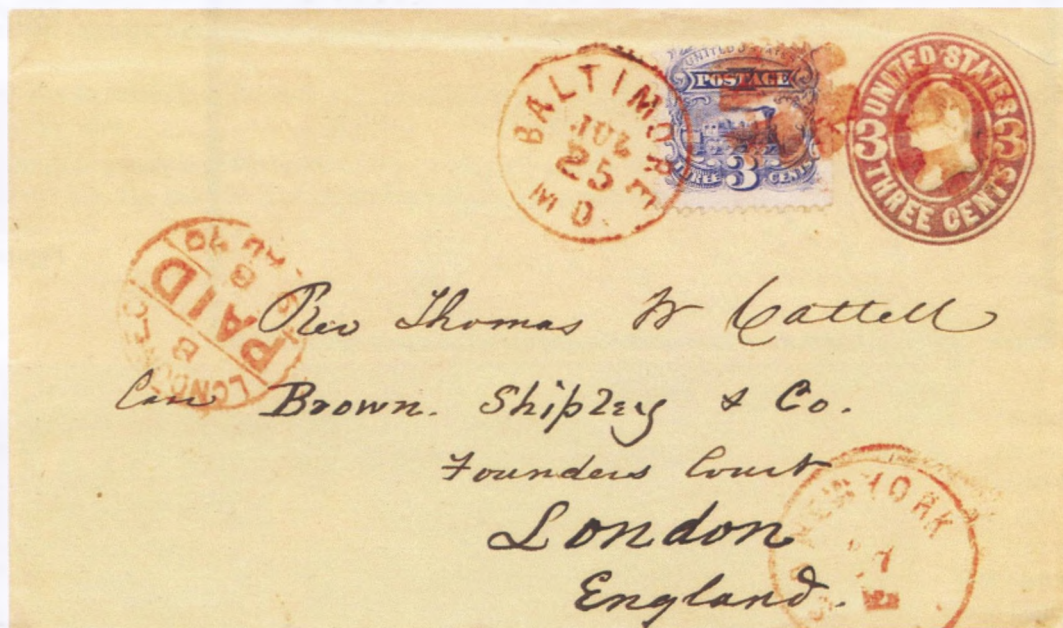 BALTIMORE
JUL
25
MD.
UNITED STATES
POSTAGE
THREE 3 CENTS
UNITED STATES
3 3
THREE CENTS
LONDON EC
PAID
8
70
Rev Thomas W Cattell
Care Brown. Shipley & Co.
Founders Court
London
England.
NEW YORK